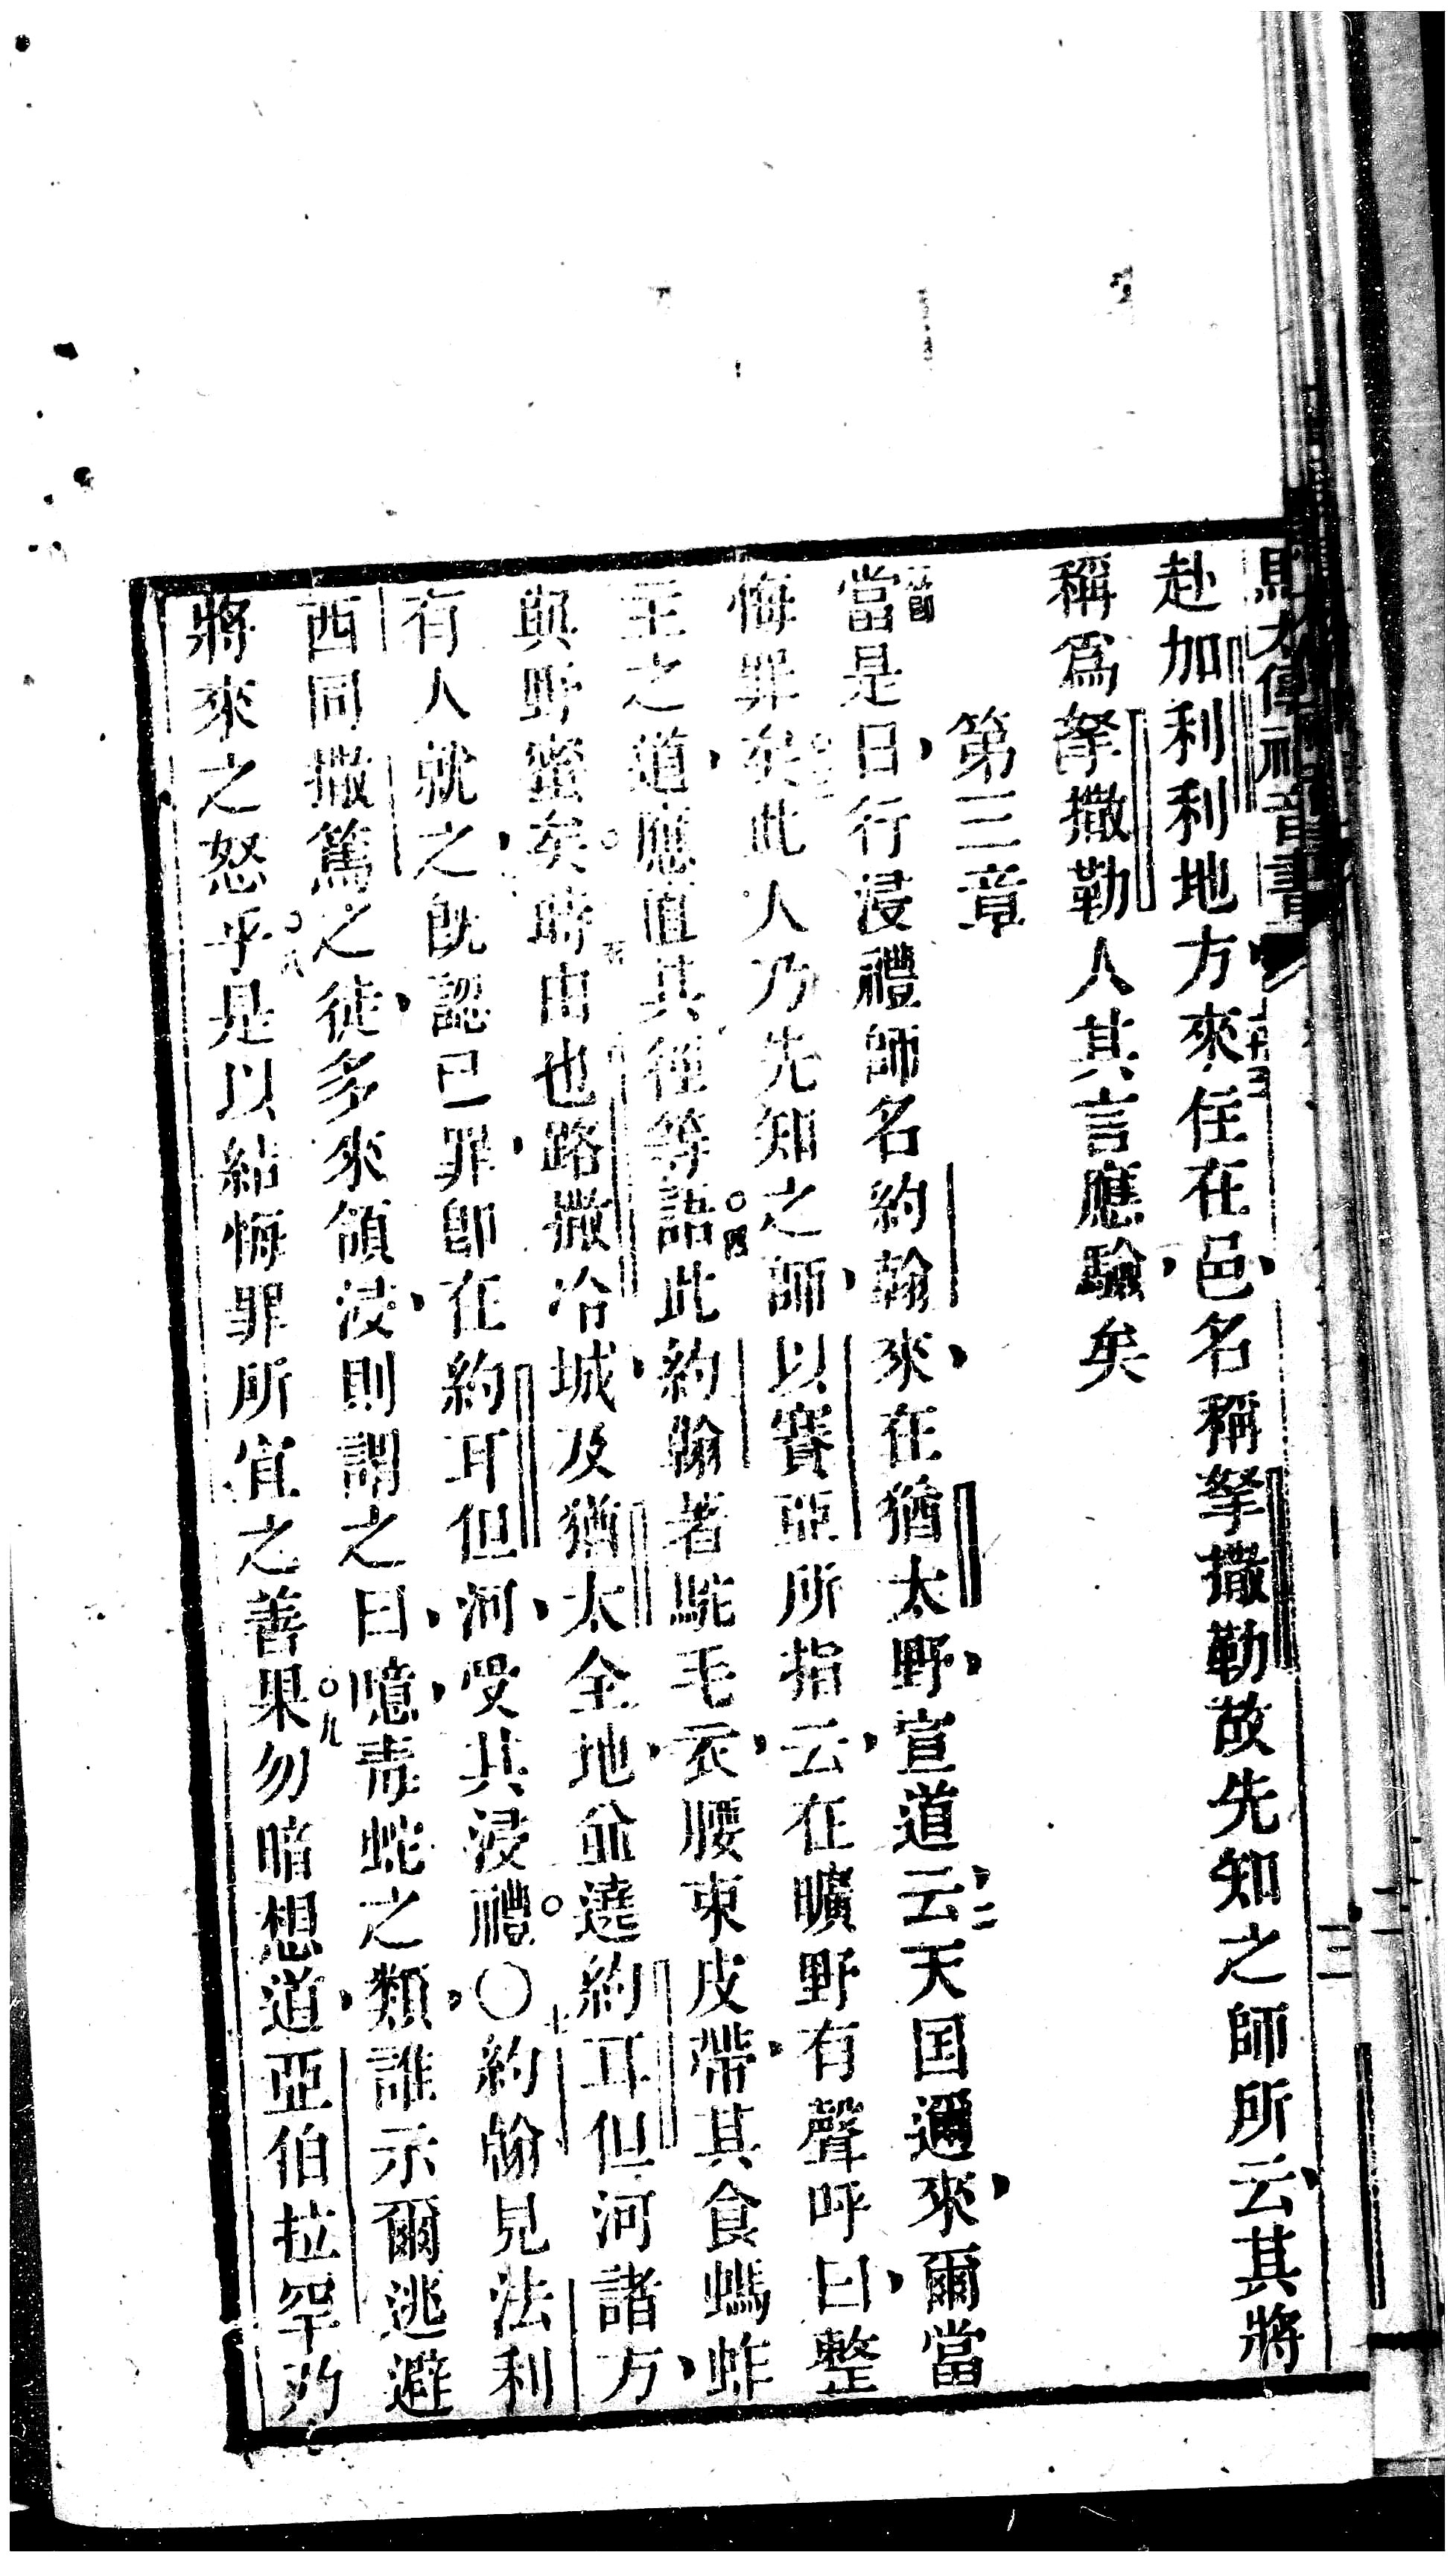 傳福音書
三
赴加利利地方來住在邑名稱拏撒勒故先知之師所云其將
稱為拏撒勒人其言應驗矣
第三章
當是日行浸禮師名約翰來在猶太野宣道云二天国邇來爾當
悔罪矣此人乃先知之師以賽亞所指云在曠野有聲呼曰整
主之道應直其徑等語○四此約翰者駝毛衣腰束皮帶其食螞蚱
與野蜜矣○五時由也路撒冷城及猶太全地並遶約耳但河諸方
有人就之旣認己罪卽在約耳但河受其浸禮○七○約翰見法利
西同撒篤之徒多來領浸則謂之曰噫毒蛇之類誰示爾逃避
將來之怒乎○八是以結悔罪所宜之善果○九勿暗想道亞伯拉罕乃